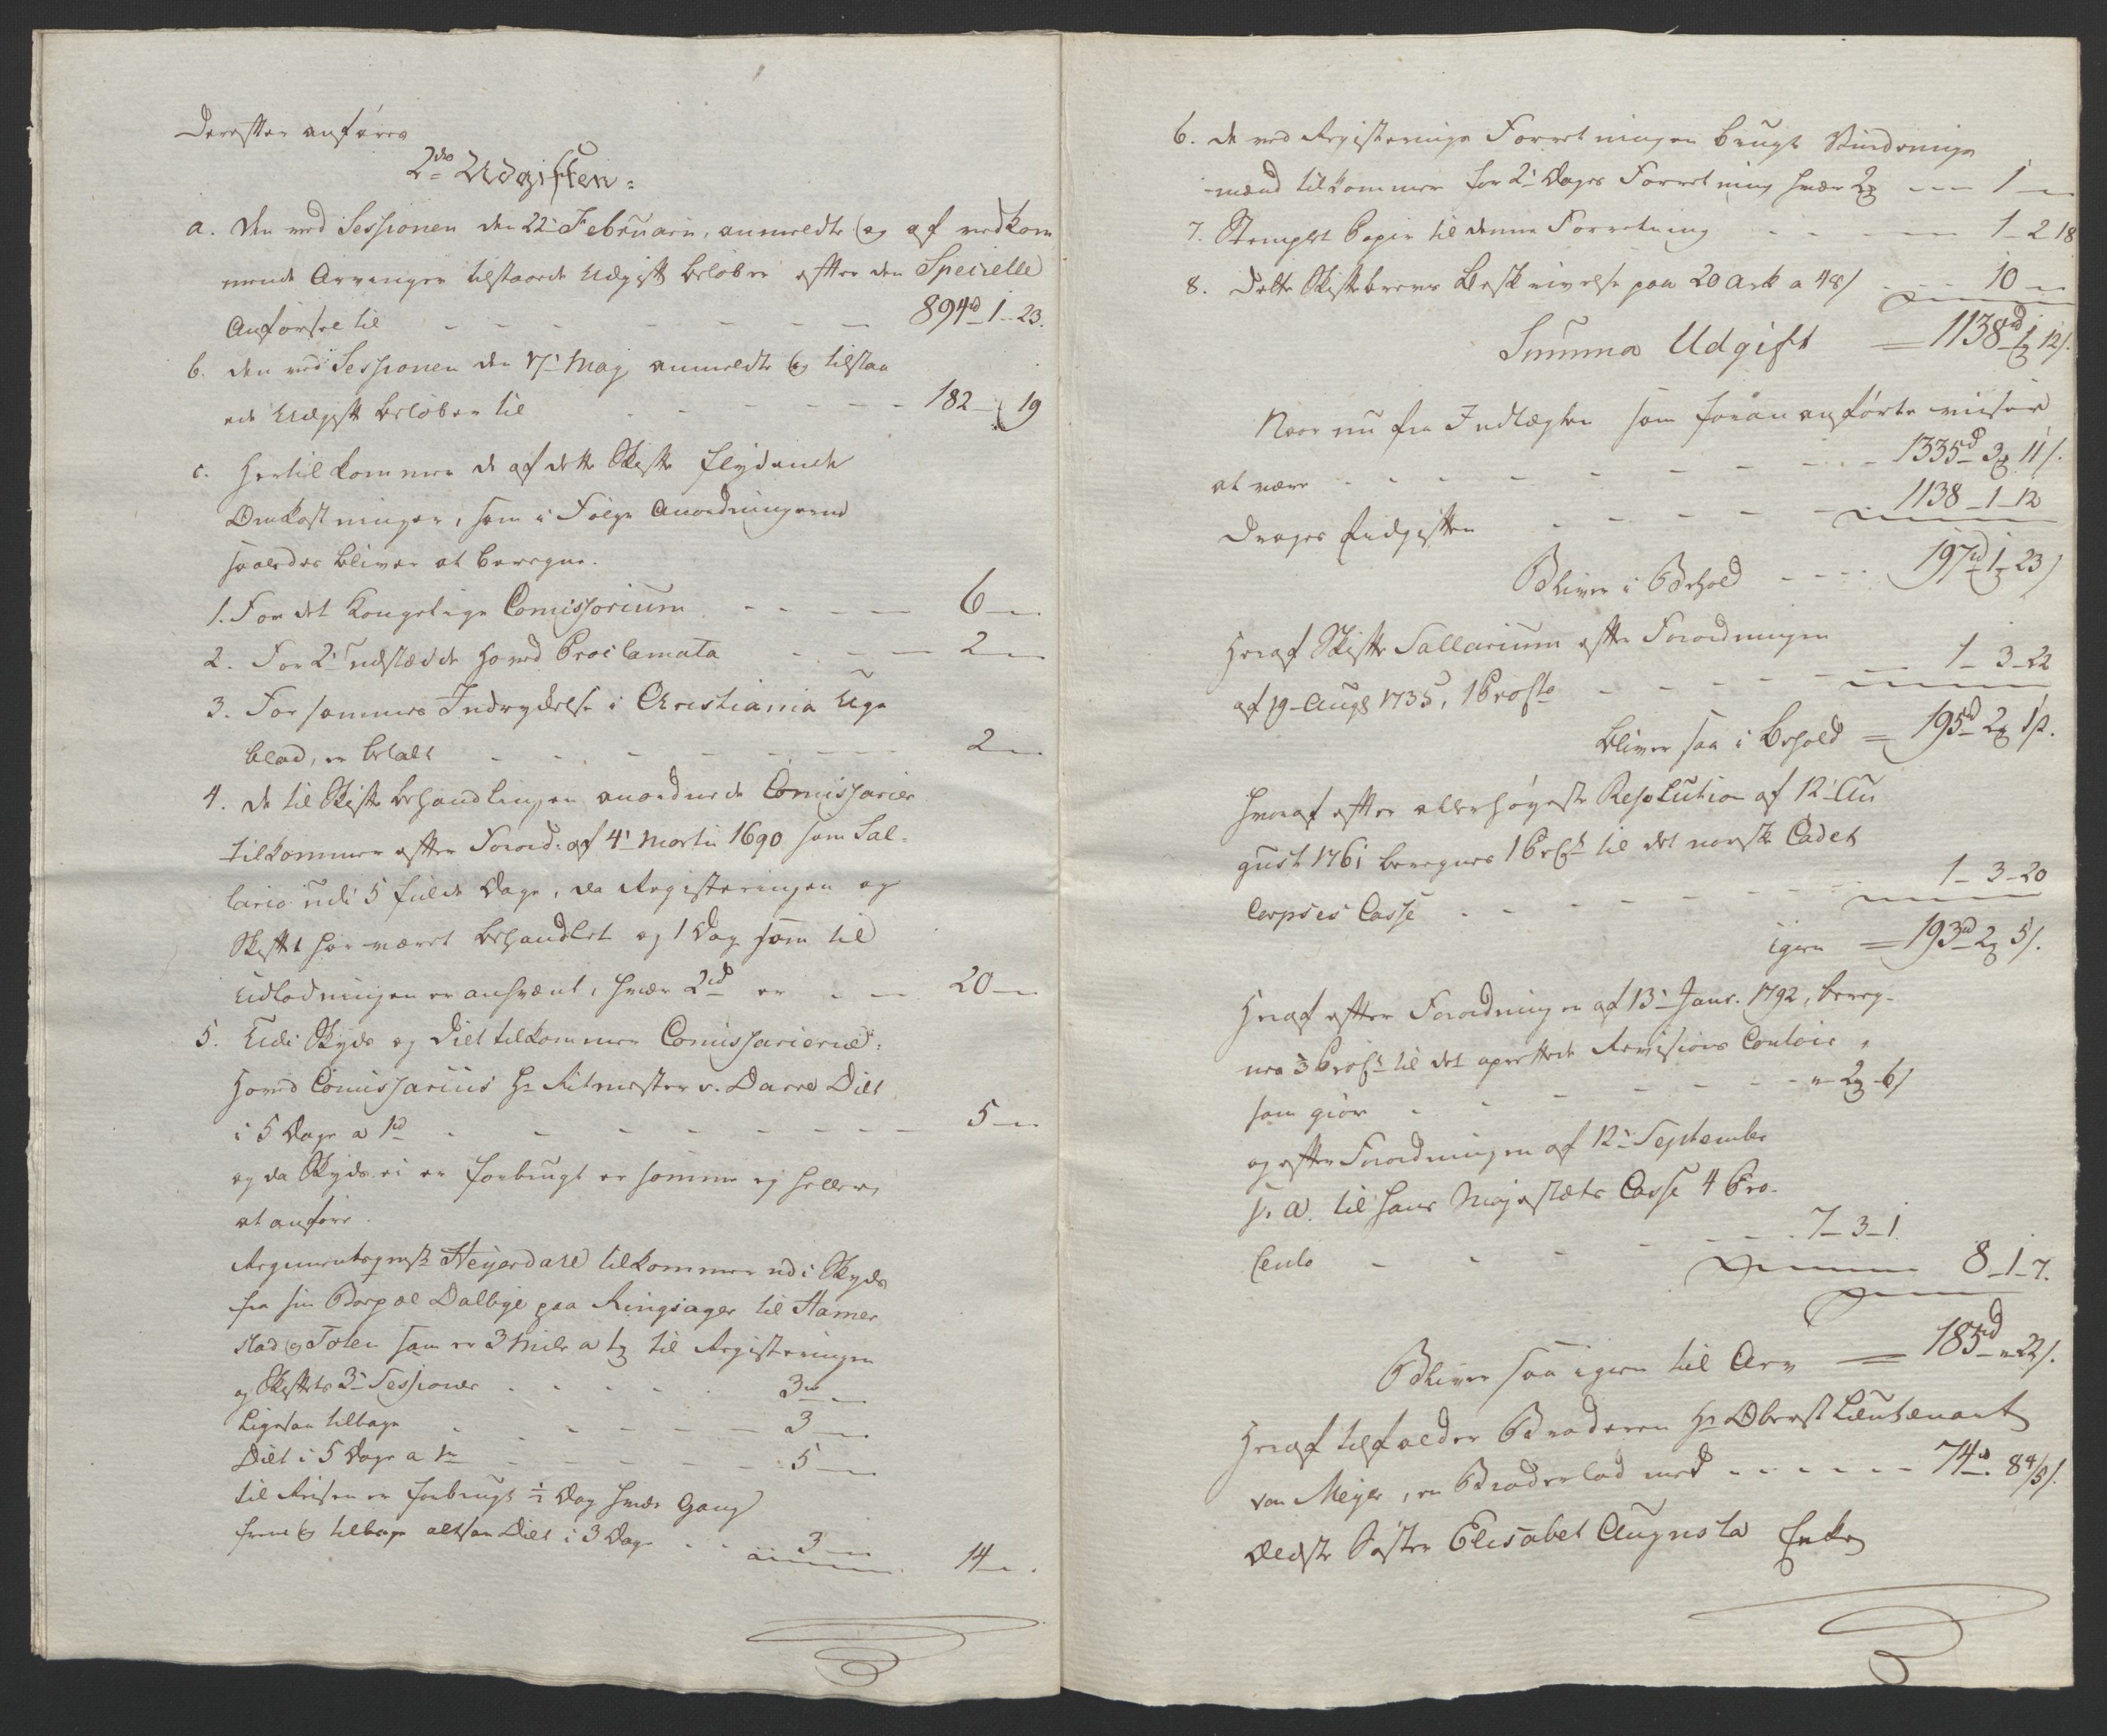 Derefter anføres
2do Udgiften:
a. Den ved Sessionen den 22 Februarii, anmeldte og af vedkom
mende Arvinger tilstaaede Udgift beløber efter den Specielle
Anførsel til - - - - - - - 894rd 1 - 23.
b. den ved Sessionen den 17' Maj anmeldte og tilstaa
ede Udgift beløber til - - - - - 182 - " 19
c. Hertil kommer de af dette Skifte flydende
Omkostninger, som i Følge Anordningerne
saaledes bliver at beregne.
1. For det Kongelige Comissorium - - - - 6 - "
2. For 2' udstædde Hoved Proclamata - - - 2 - "
3. For sammes Indrykelse i Christiania Uge
blad, er betalt - - - - - - 2 - "
4. De til Skifte behandlingen anordnede Comissarier
tilkommer efter Forord. af 4' Martii 1690 som Sal-
lario udi 5 fulde Dage, da Registeringen og
Skiftet har været behandlet og 1 Dag som til
Udlodningen er anvænt, hver 2rd er - - 20 - "
5. Udi Skyds og Diet tilkommer Comissarierne:
Hoved Comissarius Hr Ritmester v. Darre Diet
i 5 Dage a 1rd - - - - - - - 5 - "
og da Skyds ei er forbrugt er samme ej heller
at anføre.
Regimentsqvmstr Heyerdahl tilkommer udi Skyds
fra sin Bopæl Dalbye paa Ringsager til Hamer
stad og Toten som er 3 Mile a 1 til Registeringen
og Skiftets 3' Sessioner - - - - - 3rd -
Ligesaa tilbage - - - - - 3 - "
Diet i 5 Dage a 1rd - - - - - 5 - "
til Reisen er forbrugt ½ Dag hver Gang
frem og tilbage altsaa Diet i 3 Dage - - 3 - " 14 - "
6. De ved Registerings Forretningen brugte Vurderings
mænd tilkommer for 2' Dages Forretning hver 2 - - - 1 - "
7. Stemplet Papir til denne Forretning - - - - 1 - 2 18
8. Dette Skiftebrevs Beskrivelse paa 20 Ark a 48 s - - - 10 - "
Summa Udgift = 1138rd 1 12 s.
Naar nu fra Indtægten som foran anførte viiser
at være - - - - - - - - 1335rd 3 11 s.
Drages Udgiften - - - - - 1138 - 1 - 12
Bliver i Behold - - - - 197rd 1 - 23 s
Heraf Skifte Sallarium efter Forordningen
af 19 Augs 1735, 1 Procto - - - - - 1 - 3 - 22
bliver saa i Behold = 195rd 2 1 s.
Hvoraf efter allerhøyeste Resolution af 12' Au
gust 1761 beregnes 1 Prct til det norske Cadet
Corpses Casse - - - - - - - 1 - 3 - 20
igien = 193rd 2 5 s.
Heraf efter Forordningen af 13' Janr. 1792, bereg-
nes Proct til det oprettede Revisions Contoir,
som giør - - - - - - - " - 2 - 6 s
og efter Forordningen af 12' September
s. A. til Hans Majestæts Casse 4 Pro-
Cento - - - - - - - 7 - 3 - 1.
8 - 1 - 7.
Bliver saa igien til Arv = 185rd - " - 22 s.
Heraf tilfalder Broderen Hr Oberst Lieutenant
von Meyer, en Broderlod med - - - - - 74rd " 8 4/5 s.
Ældste Søster Elisabet Augusta Enke